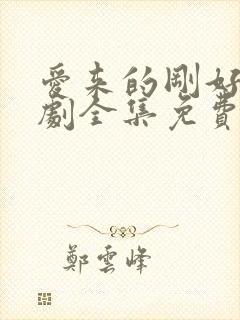 愛来的剛好
劇全集免費
鄭雲峰